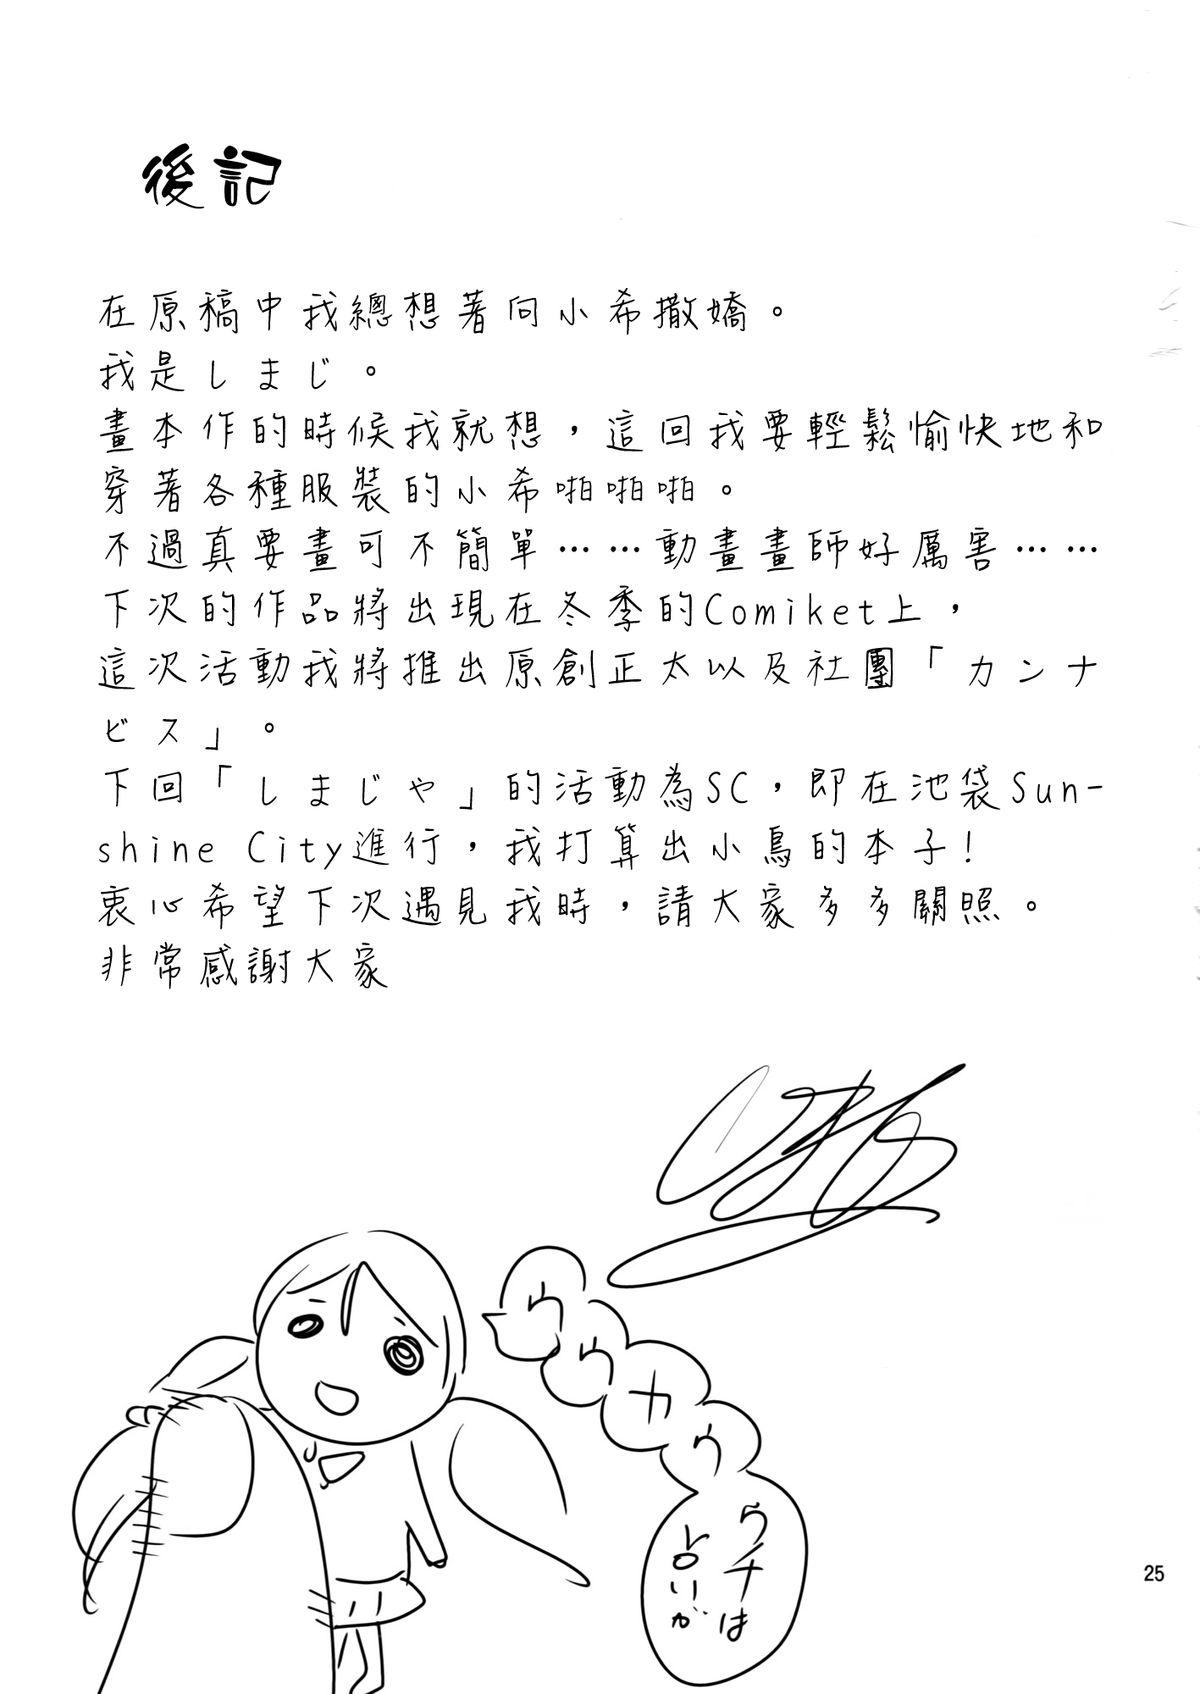 後記
在原稿中我總想著向小希撒嬌。
我是しまじ。
畫本作的時候我就想，這回我要輕鬆愉快地和
穿著各種服裝的小希啪啪啪。
不過真要畫可不簡單……動畫畫師好厲害……
下次的作品將出現在冬季的Comiket上，
這次活動我將推出原創正太以及社團「カンナ
ビス」。
下回「しまじや」的活動為SC，即在池袋Sun-
shine City進行，我打算出小鳥的本子！
衷心希望下次遇見我時，請大家多多關照。
非常感謝大家
ウ
ウ
カ
ウ
ウチは
占いが
25